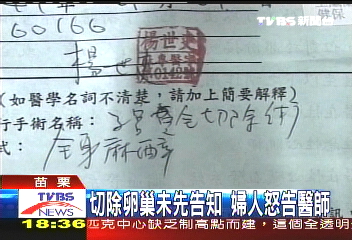 TVBS 新聞台
60166
楊世
楊世
（如醫學名詞不清楚，請加上簡要解釋）
行手術名稱：子宮 全切除術
式：全身麻醉
苗栗
TVBS
NEWS
切除卵巢未先告知 婦人怒告醫師
18:36
匹克中心缺乏制高點而建，這個全透明